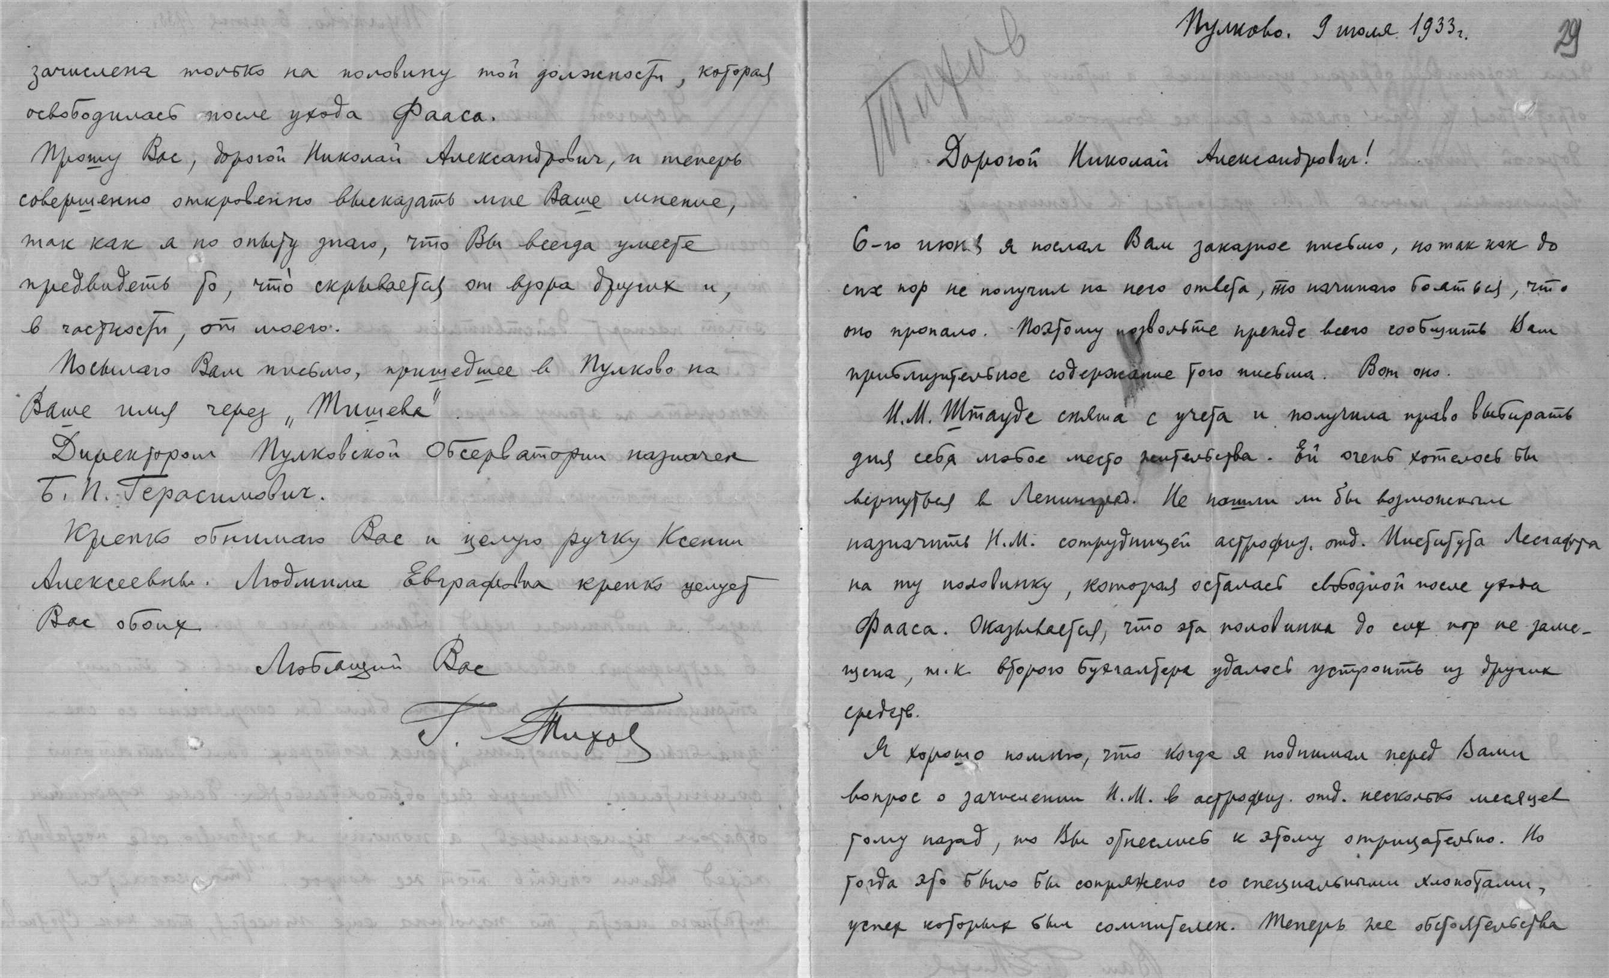 зачислена только на половину той должности, которая
освободилась после ухода Фааса.
Прошу Вас, дорогой Николай Александрович, и теперь
совершенно откровенно высказать мне Ваше мнение,
так как я по опыту знаю, что Вы всегда умеете
предвидеть то, что́ скрывается от взора других и,
в частности, от моего.
Посылаю Вам письмо, пришедшее в Пулково на
Ваше имя через „Тишева".
Директором Пулковской Обсерватории назначен
Б. П. Герасимович.
Крепко обнимаю Вас и целую ручку Ксении
Алексеевны. Людмила Евграфовна крепко целует
Вас обоих
Любящий Вас
Г. Тихов
Пулково. 9 июля 1933 г.
29
Тихов
Дорогой Николай Александрович!
6-го июня я послал Вам заказное письмо, но так как до
сих пор не получил на него ответа, то начинаю бояться, что
оно пропало. Поэтому позвольте прежде всего сообщить Вам
приблизительное содержание того письма. Вот оно.
Н.М. Штауде снята с учета и получила право выбирать
для себя любое место жительства. Ей очень хотелось бы
вернуться в Ленинград. Не нашли ли бы возможным
назначить Н.М. сотрудницей астрофиз. отд. Института Лесгафта
на ту половинку, которая осталась свободной после ухода
Фааса. Оказывается, что эта половинка до сих пор не заме-
щена, т.к. второго бухгалтера удалось устроить из других
средств.
Я хорошо помню, что когда я поднимал перед Вами
вопрос о зачислении Н.М. в астрофиз. отд. несколько месяцев
тому назад, то Вы отнеслись к этому отрицательно. Но
тогда это было бы сопряжено со специальными хлопотами,
успех которых был сомнителен. Теперь же обстоятельства